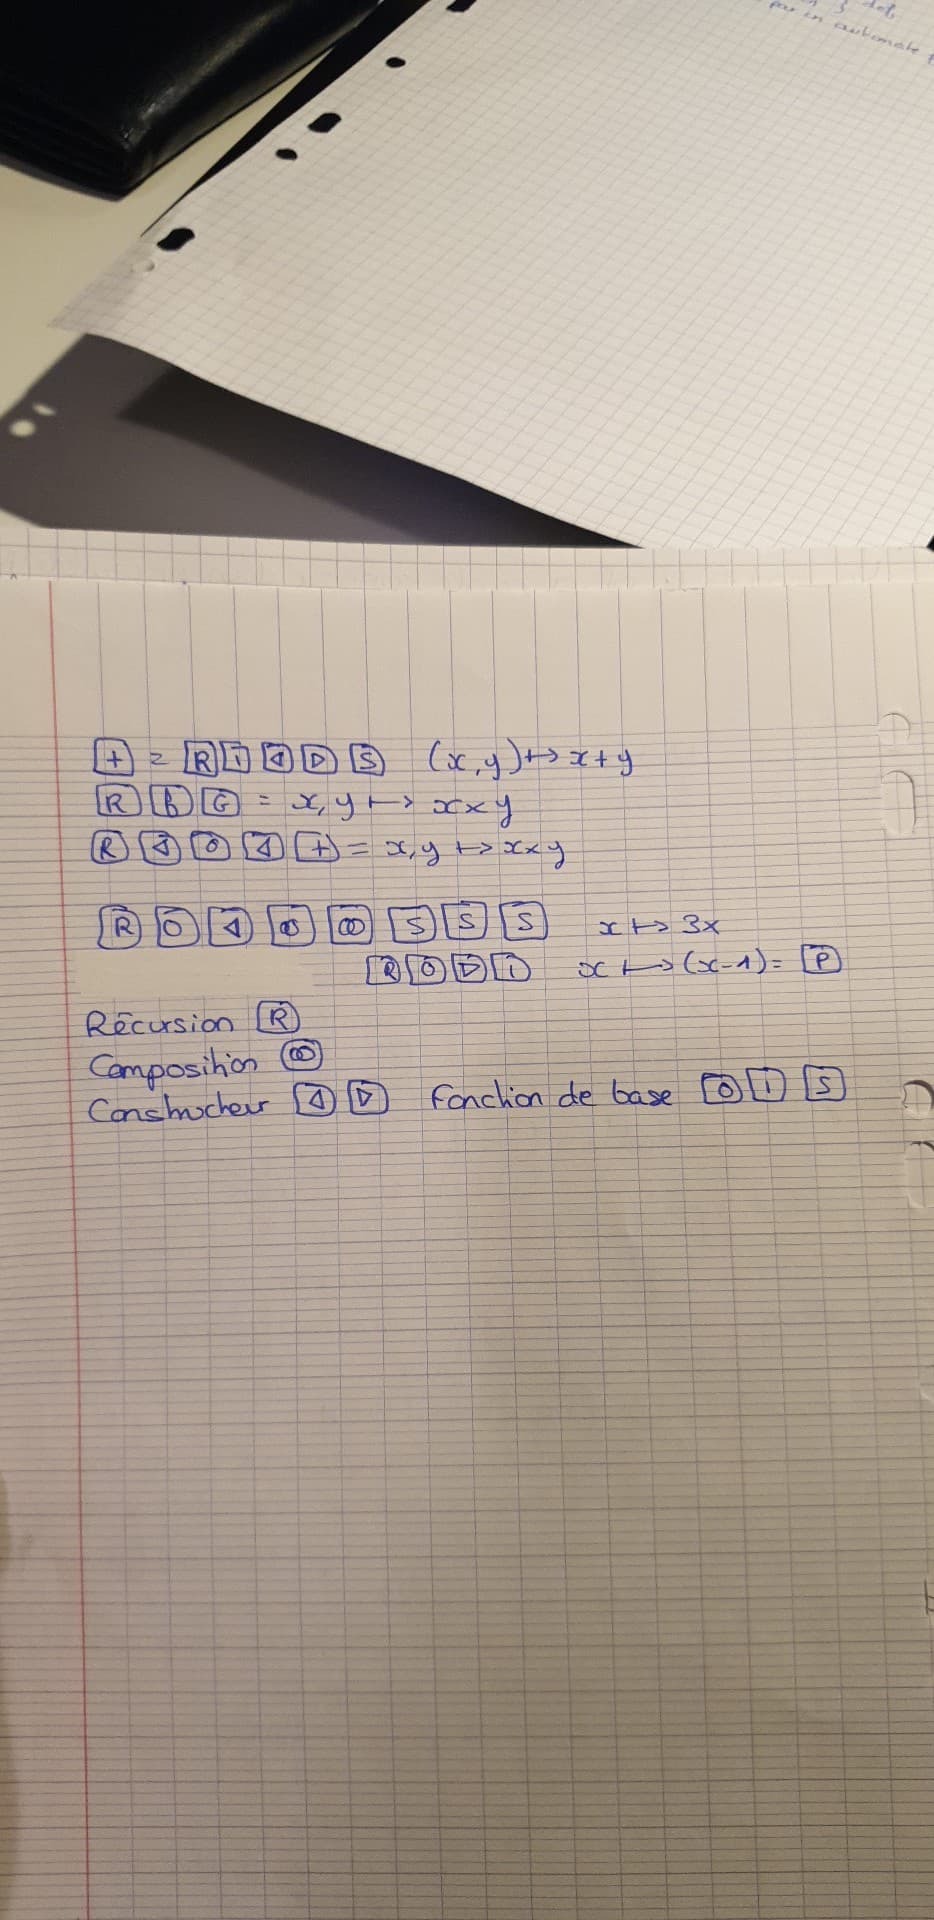 par un automate
[+] = [R] [I] [◁] [▷] [S] (x,y) ↦ x+y
[R] [B] [G] = x,y ↦ x×y
[R] [◁] [O] [◁] [+] = x,y ↦ x×y
[R] [O] [◁] [⊚] [⊚] [S] [S] [S] x ↦ 3x
[R] [O] [▷] [I] x ↦ (x-1) = [P]
Récursion [R]
Composition [⊚]
Constructeur [◁] [▷] Fonction de base [O] [I] [S]